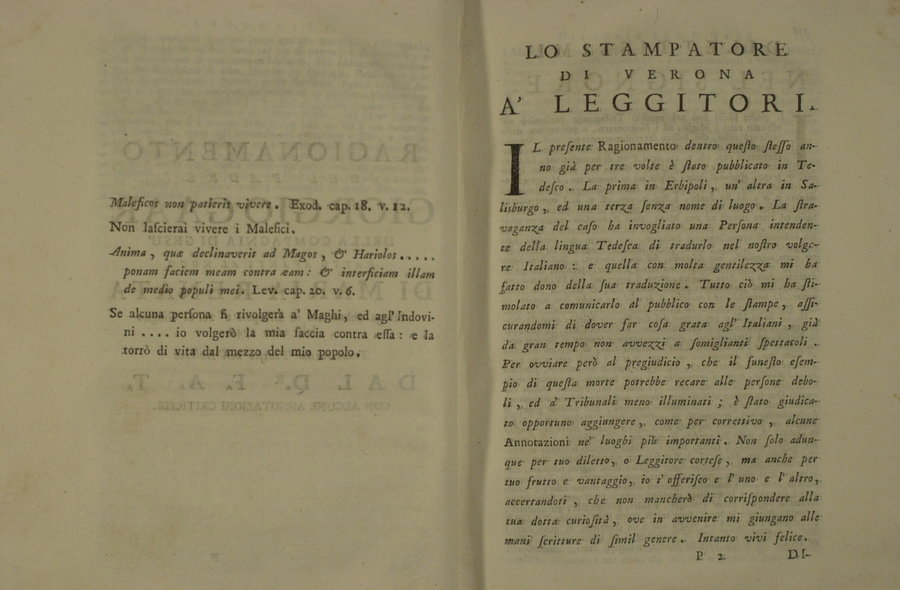 Maleficos non patieris vivere. Exod. cap. 18. v. 12.
Non laſcierai vivere i Malefici.
Anima, quæ declinaverit ad Magos, & Hariolos.....
ponam faciem meam contra eam: & interficiam illam
de medio populi mei. Lev. cap. 20. v. 6.
Se alcuna perſona ſi rivolgerà a' Maghi, ed agl' Indovi-
ni .... io volgerò la mia faccia contra eſſa: e la
torrò di vita dal mezzo del mio popolo.
LO STAMPATORE
DI VERONA
A' LEGGITORI.
IL preſente Ragionamento dentro queſto ſteſſo an-
no già per tre volte è ſtato pubblicato in Te-
deſco. La prima in Erbipoli, un' altra in Sa-
lisburgo, ed una terza ſenza nome di luogo. La ſtra-
vaganza del caſo ha invogliato una Perſona intenden-
te della lingua Tedeſca di tradurlo nel noſtro volga-
re Italiano: e quella con molta gentilezza mi ha
fatto dono della ſua traduzione. Tutto ciò mi ha ſti-
molato a comunicarlo al pubblico con le ſtampe, aſſi-
curandomi di dover far coſa grata agl' Italiani, già
da gran tempo non avvezzi a ſomiglianti ſpettacoli.
Per ovviare però al pregiudicio, che il funeſto eſem-
pio di queſta morte potrebbe recare alle perſone debo-
li, ed a' Tribunali meno illuminati; è ſtato giudica-
to opportuno aggiungere, come per correttivo, alcune
Annotazioni ne' luoghi più importanti. Non ſolo adun-
que per tuo diletto, o Leggitore corteſe, ma anche per
tuo frutto e vantaggio, io t' offeriſco e l' uno e l' altro,
accertandoti, che non mancherò di corriſpondere alla
tua dotta curioſità, ove in avvenire mi giungano alle
mani ſcritture di ſimil genere. Intanto vivi felice.
P 2 DI-